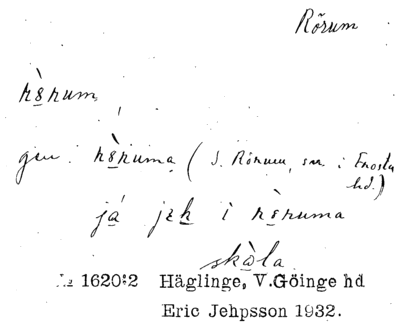 Rõrum
rs̲̀rum
gen. rs̲̀ruma ( s. Rörum, sn i Frosta
hd.)
já̲ jɛk̲ i rs̲̀ruma
skò̲la
1620:2 Häglinge, V.Göinge hd
Eric Jehpsson 1932.